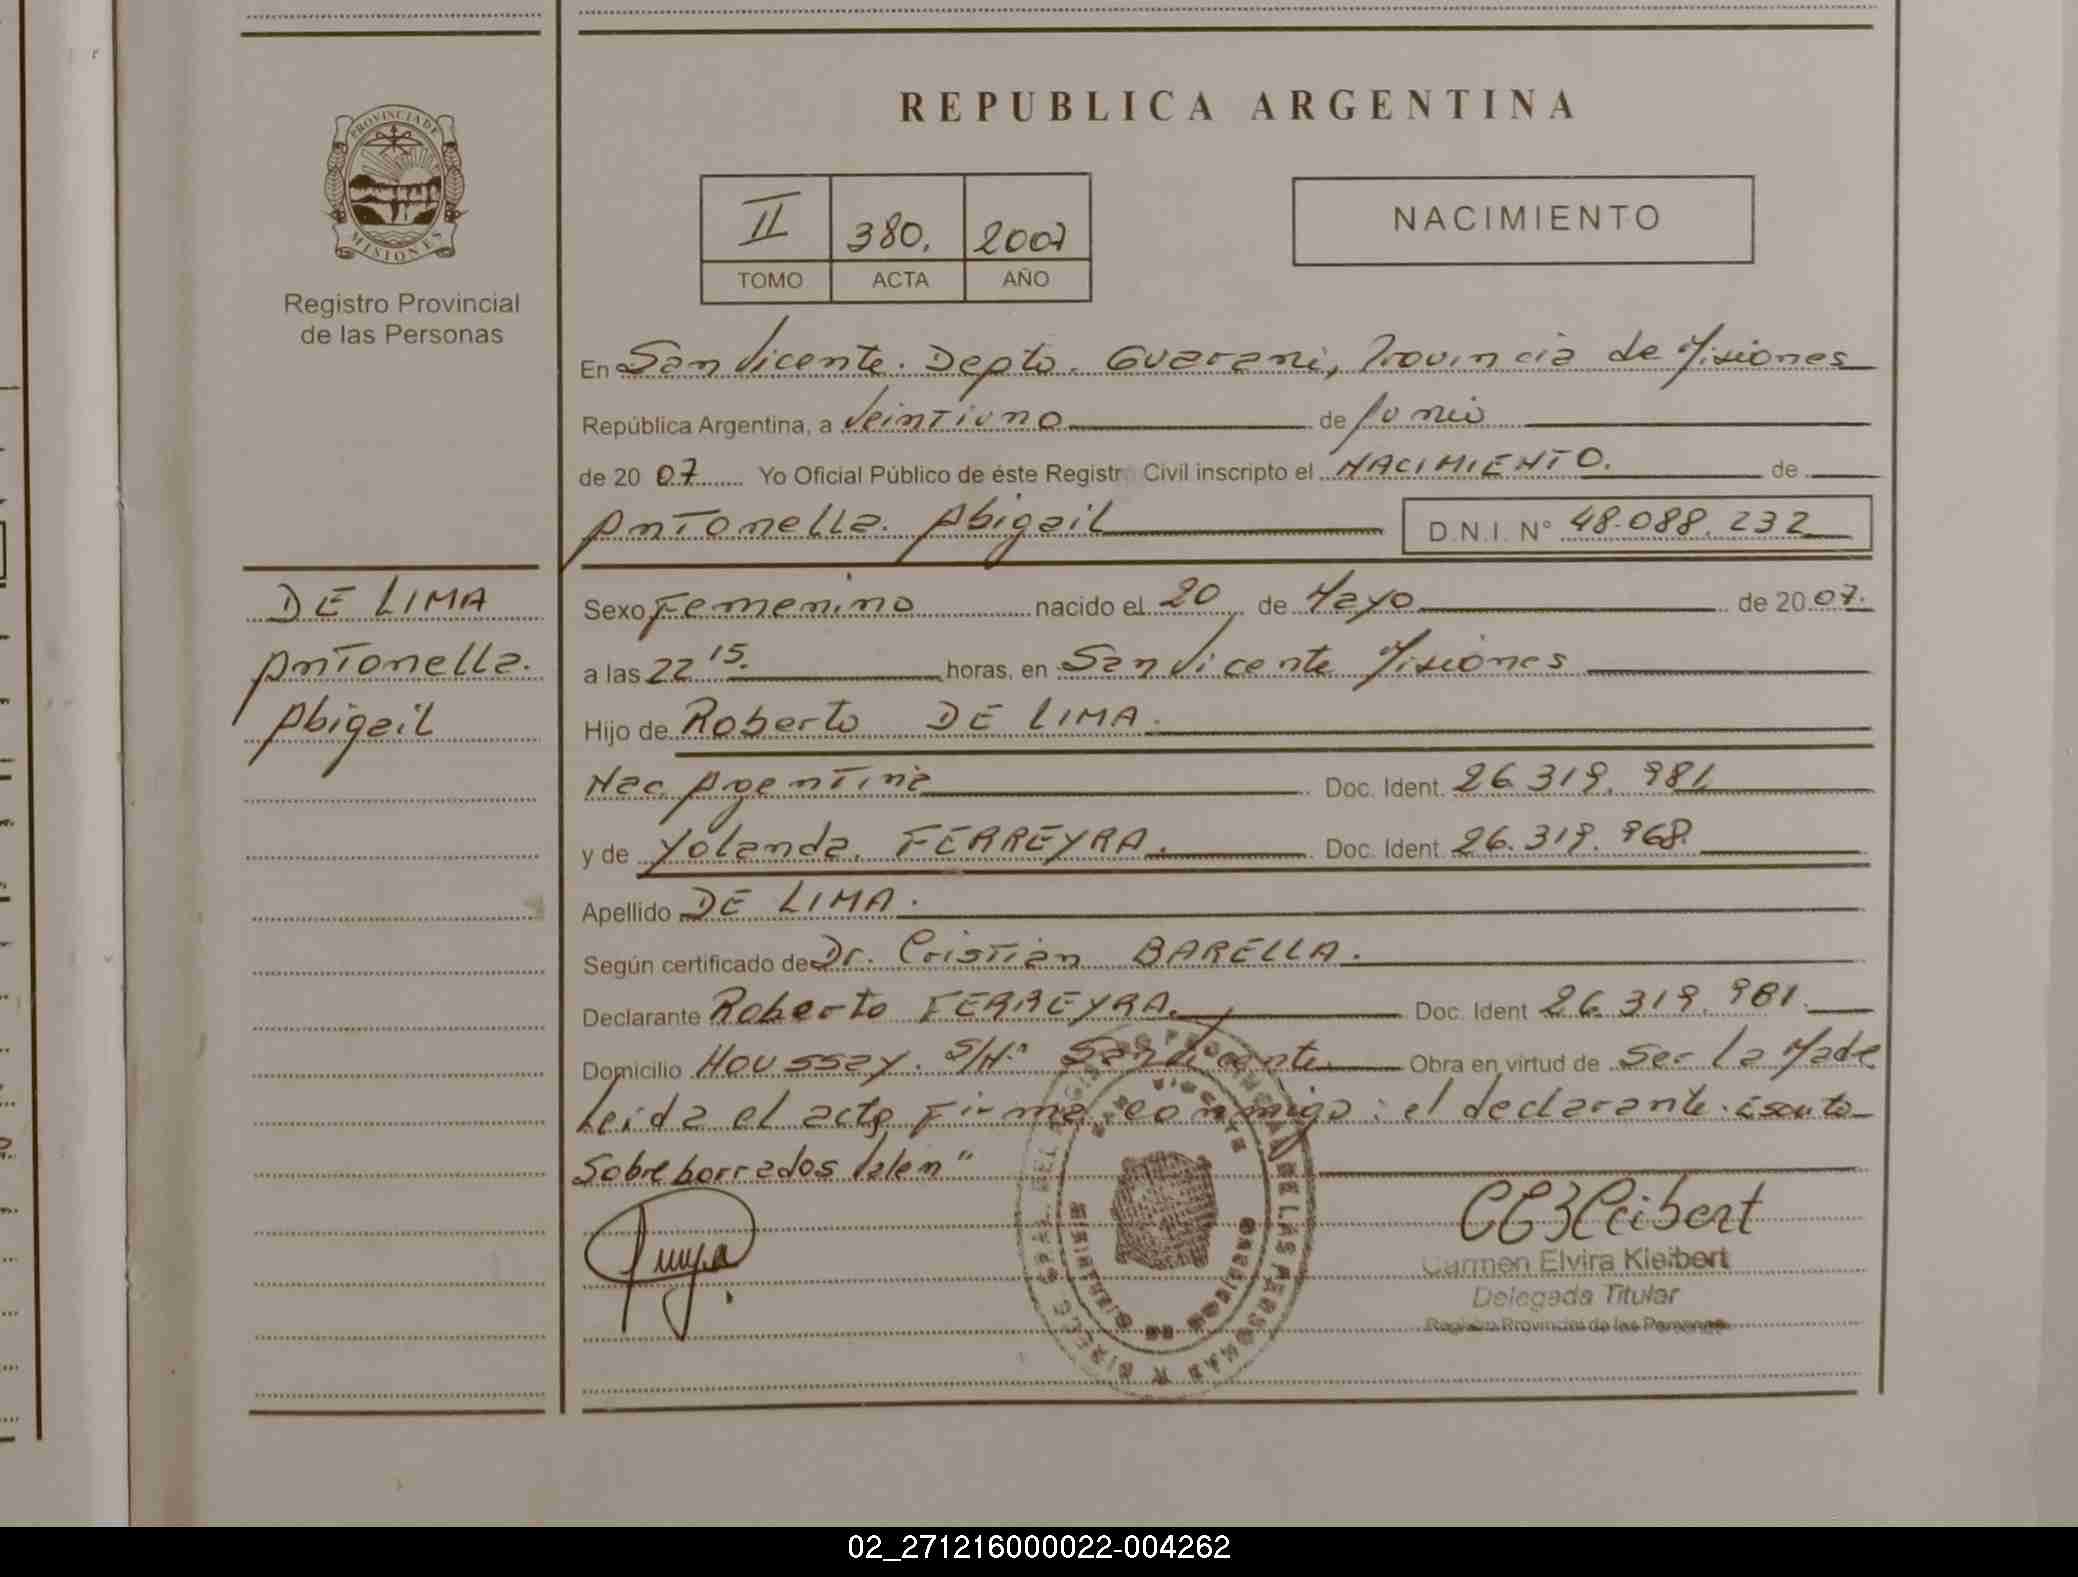 REPUBLICA ARGENTINA
PROVINCIA DE
MISIONES
Registro Provincial
de las Personas
II 380. 2007
TOMO ACTA AÑO
NACIMIENTO
En San Vicente. Depto. Guarani, Provincia de Misiones
República Argentina, a Veintiuno de Junio
de 20 07 Yo Oficial Público de éste Registr Civil inscripto el NACIMIENTO. de
Antonella. Abigail D.N.I. N° 48.088.232
DE LIMA
Antonella.
Abigail
Sexo Femenino nacido el 20 de Mayo de 20 07.
a las 22 15. horas, en San Vicente Misiones
Hijo de Roberto DE LIMA.
Nac Agentina Doc. Ident. 26.319.981
y de Yolanda. FERREYRA. Doc. Ident. 26.319.968.
Apellido DE LIMA.
Según certificado de Dr. Cristian BARELLA.
Declarante Roberto FERREYRA. Doc. Ident 26.319.981.
Domicilio HOUSSAY. S/Nº San Vicente Obra en virtud de Ser La Madre
Leida el acta Firma conmigo: el declarante.
Sobreborrados Valen"
Carmen Elvira Kleibert
Delegada Titular
Registro Provincial de las Personas
02_271216000022-004262